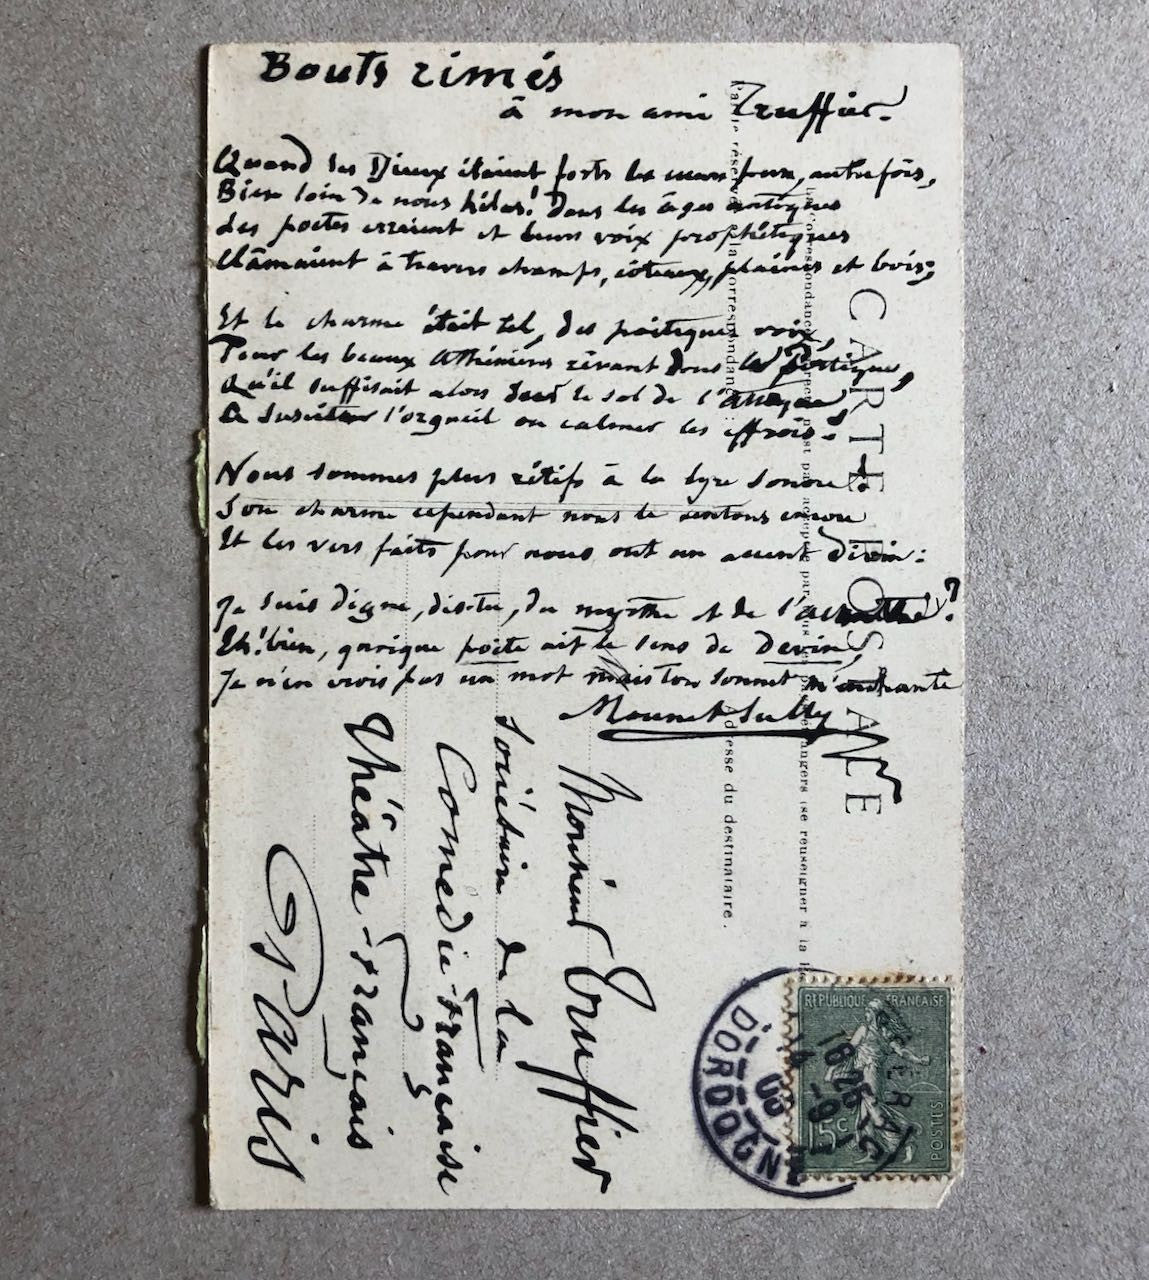 Bouts rimés
à mon ami Truffier.
Quand les Dieux étaient forts autrefois,
Bien loin de nous hélas! Dans les âges antiques
Les poètes erraient et leurs voix prophétiques
Clâmaient à travers champs, côteaux, plaines et bois;
Et le charme était tel, des poétiques voix,
Pour les beaux Athéniens rêvant dans les Portiques,
Qu'il suffisait alors sur le sol de l'Attique,
De susciter l'orgueil ou calmer les effrois.
Nous sommes plus rétifs à la lyre sonore.
Son charme cependant nous le sentons encore
Et les vers faits pour nous ont un accent divin:
Je suis digne, dis-tu, du myrthe et de l'acanthe?
Eh! bien, quoique poète ait le sens de Devin,
Je n'en crois pas un mot mais ton sonnet m'enchante
Mounet Sully
CARTE POSTALE
La correspondance au recto n'est pas acceptée par tous les pays étrangers (se renseigner à la
Partie réservée à la correspondance
Adresse du destinataire.
Monsieur Truffier
Sociétaire de la
Comédie-Française
Théâtre-Français
Paris
RÉPUBLIQUE FRANÇAISE
15c
POSTES
BERGERAC
18 25
14 -9
06
DORDOGNE